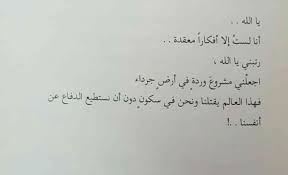 يا الله . .
أنا لستُ إلا أفكاراً معقدة . .
رتبني يا الله ،
اجعلْني مشروعَ وردةٍ في أرضٍ جرداء
فهذا العالم يقتلنا ونحن في سكونٍ دون أن نستطيع الدفاع عن
أنفسنا . .!